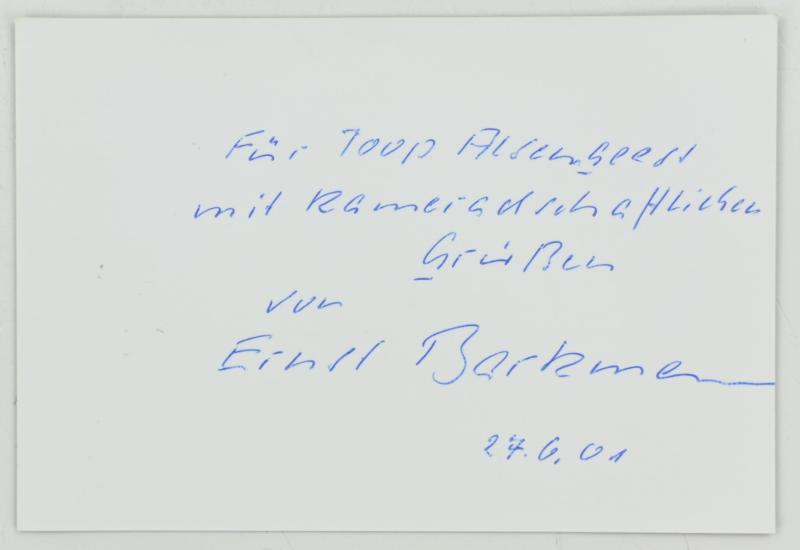 Für Joop Alsemgeest
mit kameradschaftlichen
Grüßen
von
Ernst Barkmann
27.6.01